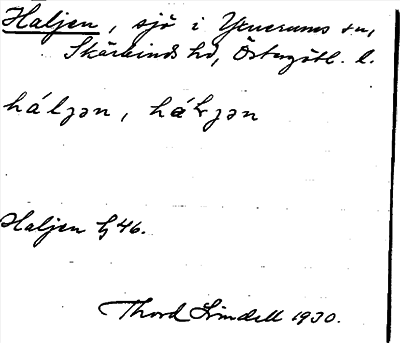 Haljen, sjö i Yxnerums sn,
Skärkinds hd, Östergötl. l.
hálȷən, háɫȷən
Haljen Ᵹ 46.
Thord Lindell 1930.